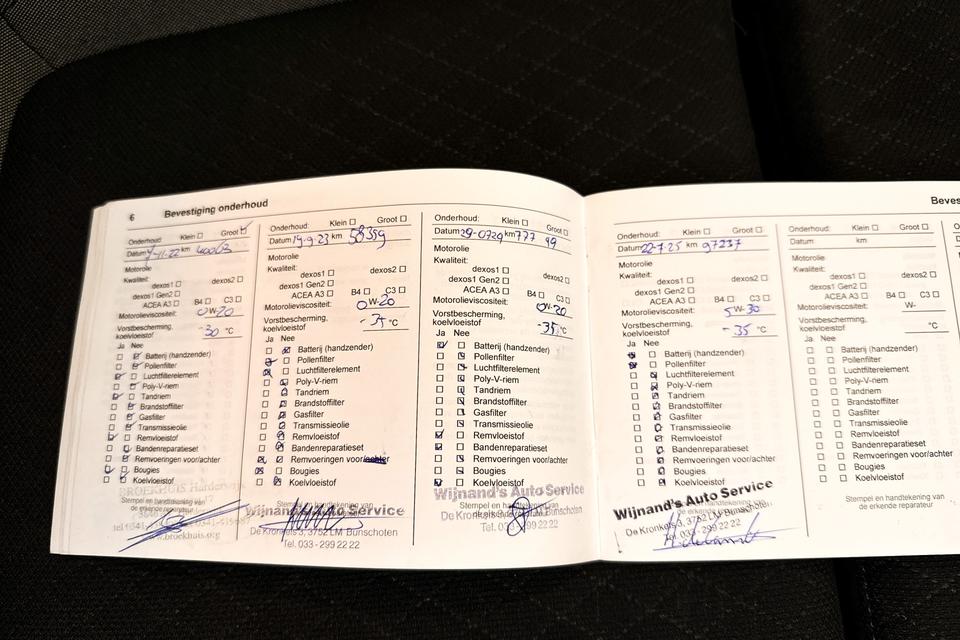 6 Bevestiging onderhoud
Onderhoud: Klein ☐ Groot ☑
Datum km 40063
Motorolie
Kwaliteit:
dexos1 ☐ dexos2 ☐
dexos1 Gen2 ☐
ACEA A3 ☐ B4 ☐ C3 ☐
Motorolieviscositeit: 0W-20
Vorstbescherming,
koelvloeistof -30 °C
Ja Nee
Batterij (handzender)
Pollenfilter
Luchtfilterelement
Poly-V-riem
Tandriem
Brandstoffilter
Gasfilter
Transmissieolie
Remvloeistof
Bandenreparatieset
Remvoeringen voor/achter
Bougies
Koelvloeistof
BROEKHUIS Harderwijk
Stempel en handtekening van
de erkende reparateur
www.broekhuis.org
Onderhoud: Klein ☐ Groot ☐
Datum 19-9-23 km 58359
Motorolie
Kwaliteit:
dexos1 ☐ dexos2 ☐
dexos1 Gen2 ☐
ACEA A3 ☐ B4 ☐ C3 ☐
Motorolieviscositeit: 0W-20
Vorstbescherming,
koelvloeistof -35 °C
Ja Nee
Batterij (handzender)
Pollenfilter
Luchtfilterelement
Poly-V-riem
Tandriem
Brandstoffilter
Gasfilter
Transmissieolie
Remvloeistof
Bandenreparatieset
Remvoeringen voor/achter
Bougies
Koelvloeistof
Stempel en handtekening van
Wijnand's Auto Service
De Kronkels 3, 3752 LM Bunschoten
Tel. 033 - 299 22 22
Onderhoud: Klein ☐ Groot ☐
Datum 29-0724 km 777 99
Motorolie
Kwaliteit:
dexos1 ☐ dexos2 ☐
dexos1 Gen2 ☐
ACEA A3 ☐ B4 ☐ C3 ☐
Motorolieviscositeit: 0W-20
Vorstbescherming,
koelvloeistof -35 °C
Ja Nee
Batterij (handzender)
Pollenfilter
Luchtfilterelement
Poly-V-riem
Tandriem
Brandstoffilter
Gasfilter
Transmissieolie
Remvloeistof
Bandenreparatieset
Remvoeringen voor/achter
Bougies
Koelvloeistof
Wijnand's Auto Service
Stempel en handtekening van
De Kronkels 3, 3752 LM Bunschoten
Tel. 033 - 299 22 22
Beves
Onderhoud: Klein ☐ Groot ☐
Datum 22-7-25 km 97237
Motorolie
Kwaliteit:
dexos1 ☐ dexos2 ☐
dexos1 Gen2 ☐
ACEA A3 ☐ B4 ☐ C3 ☐
Motorolieviscositeit: 5W-30
Vorstbescherming,
koelvloeistof -35 °C
Ja Nee
Batterij (handzender)
Pollenfilter
Luchtfilterelement
Poly-V-riem
Tandriem
Brandstoffilter
Gasfilter
Transmissieolie
Remvloeistof
Bandenreparatieset
Remvoeringen voor/achter
Bougies
Koelvloeistof
Wijnand's Auto Service
De Kronkels 3, 3752 LM Bunschoten
Tel. 033 - 299 22 22
Onderhoud: Klein ☐ Groot ☐
Datum km
Motorolie
Kwaliteit:
dexos1 ☐ dexos2 ☐
dexos1 Gen2 ☐
ACEA A3 ☐ B4 ☐ C3 ☐
Motorolieviscositeit: W-
Vorstbescherming,
koelvloeistof °C
Ja Nee
Batterij (handzender)
Pollenfilter
Luchtfilterelement
Poly-V-riem
Tandriem
Brandstoffilter
Gasfilter
Transmissieolie
Remvloeistof
Bandenreparatieset
Remvoeringen voor/achter
Bougies
Koelvloeistof
Stempel en handtekening van
de erkende reparateur